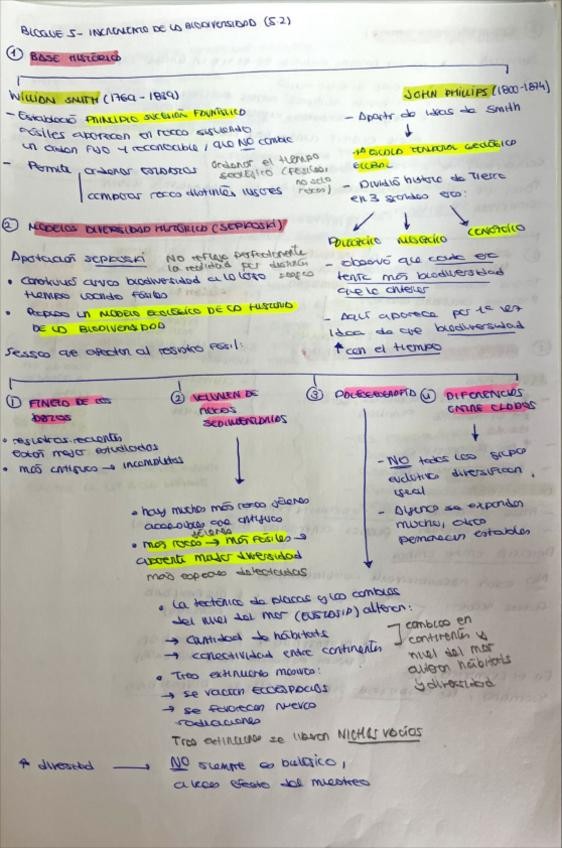 BLOQUE 5- INCREMENTO DE LA BIODIVERSIDAD (5.2)
① BASE HISTÓRICO
WILLIAN SMITH (1769 - 1839)
- Estableció PRINCIPIO SUCESIÓN FAUNÍSTICO
fósiles aparecen en rocas siguiendo
un orden FIJO y reconocible, que NO cambia
- Permite ordenar estratos
comparar rocas distintos lugares
ordenar el tiempo
geológico (fósiles,
no solo
rocas)
JOHN PHILLIPS (1800-1874)
- A partir de ideas de Smith
1ª ESCALA TEMPORAL GEOLÓGICO
GLOBAL
- Dividió historia de Tierra
en 3 grandes eras:
PALEOZOICO MESOZOICO CENOZOICO
- observó que cada era
tenía más biodiversidad
que la anterior
- Aquí aparece por 1ª vez
idea de que biodiversidad
↑ con el tiempo
② MODELOS DIVERSIDAD HISTÓRICO (SEPKOSKI)
Aportación SEPKOSKI
NO refleja perfectamente
la realidad por distintos
sesgos
• Construyó curvas biodiversidad a lo largo
tiempo usando fósiles
• Propuso un MODELO ECOLÓGICO DE LA HISTORIA
DE LA BIODIVERSIDAD
Sesgos que afectan al registro fósil:
① FINEZA DE LOS
DATOS
• registros recientes
están mejor estudiados
• más antiguo → incompletos
② VOLUMEN DE
ROCAS
SEDIMENTARIAS
• hay muchas más rocas jóvenes
accesibles que antiguas
• más rocas jóvenes → más fósiles →
aparente mayor diversidad
más especies detectadas
③ PALEOGEOGRAFÍA
• La tectónica de placas y los cambios
del nivel del mar (EUSTASIA) alteran:
→ cantidad de hábitats
→ conectividad entre continentes
cambios en
continentes y
nivel del mar
alteran hábitats
y diversidad
• Tras extinciones masivas:
→ se vacían ECOESPACIOS
→ se favorecen nuevas
radiaciones
Tras extinciones se liberan NICHOS VACÍOS
④ DIFERENCIAS
ENTRE CLADOS
- NO todos los grupos
evolutivos diversifican
igual
- Algunos se expanden
mucho, otros
permanecen estables
↑ diversidad → NO siempre es biológico,
a veces efecto del muestreo